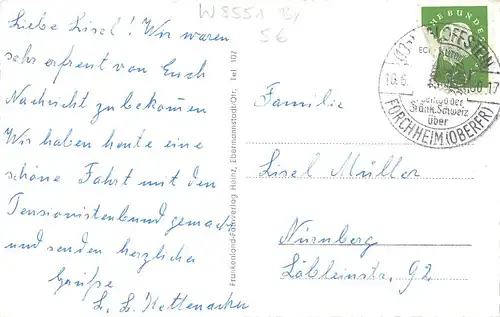 W8551 By
56
Liebe Lisel! Wir waren
sehr erfreut von Euch
Nachricht zu bekommen
Wir haben heute eine
schöne Fahrt mit den
Pensionistenbund gemacht
und senden herzliche
Grüße
L. L. Kettenacker
Frankenland-Fotoverlag Heinz, Ebermannstadt/Ofr. Tel 102
HE BUNDES
(13a) EGLOFFSTEIN
16.6. 17
Fränk. Schweiz
über
FORCHHEIM (OBERFR)
Familie
Lisel Müller
Nürnberg
Löbleinstr. 92